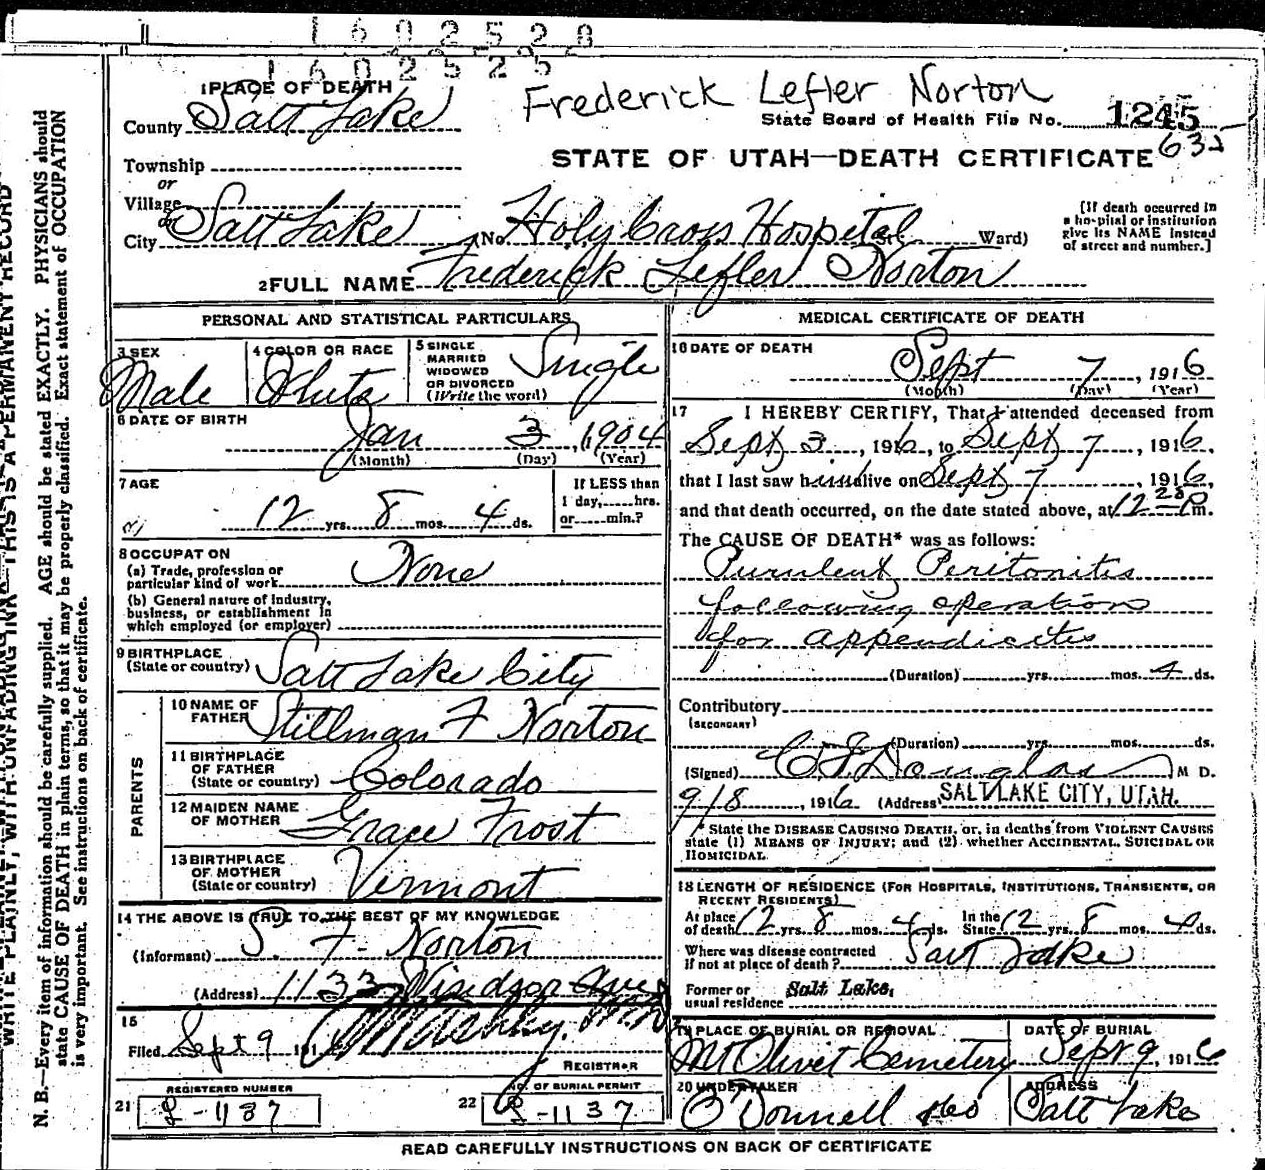 1602528
1602525
Frederick Lefler Norton
1 PLACE OF DEATH
County Salt Lake
State Board of Health File No. 1245
632
Township
or
Village
or
City Salt Lake (No. Holy Cross Hospital St.; Ward)
[If death occurred in a hospital or institution give its NAME instead of street and number.]
STATE OF UTAH—DEATH CERTIFICATE
2 FULL NAME Frederick Lefler Norton
PERSONAL AND STATISTICAL PARTICULARS
3 SEX Male
4 COLOR OR RACE White
5 SINGLE MARRIED WIDOWED OR DIVORCED (Write the word) Single
6 DATE OF BIRTH
Jan 3, 1904
(Month) (Day) (Year)
7 AGE
12 yrs. 8 mos. 4 ds.
If LESS than 1 day,.....hrs. or.....min.?
8 OCCUPATION
(a) Trade, profession or particular kind of work None
(b) General nature of industry, business, or establishment in which employed (or employer)
9 BIRTHPLACE
(State or country) Salt Lake City
PARENTS
10 NAME OF FATHER Stillman F Norton
11 BIRTHPLACE OF FATHER (State or country) Colorado
12 MAIDEN NAME OF MOTHER Grace Frost
13 BIRTHPLACE OF MOTHER (State or country) Vermont
14 THE ABOVE IS TRUE TO THE BEST OF MY KNOWLEDGE
(Informant) S. F. Norton
(Address) 1133 Windsor Ave
15
Filed Sept 9 191
REGISTRAR
REGISTERED NUMBER
21 L-1137
NO. OF BURIAL PERMIT
22 L-1137
MEDICAL CERTIFICATE OF DEATH
16 DATE OF DEATH
Sept 7, 1916
(Month) (Day) (Year)
17 I HEREBY CERTIFY, That I attended deceased from
Sept 3, 1916, to Sept 7, 1916,
that I last saw him alive on Sept 7, 1916,
and that death occurred, on the date stated above, at 12 28 P m.
The CAUSE OF DEATH* was as follows:
Purulent Peritonitis
following operation
for appendicitis
(Duration) yrs. mos. 4 ds.
Contributory
(SECONDARY)
(Duration) yrs. mos. ds.
(Signed) C F Douglas M D.
9/8, 1916 (Address) SALT LAKE CITY, UTAH.
* State the DISEASE CAUSING DEATH, or, in deaths from VIOLENT CAUSES
state (1) MEANS OF INJURY; and (2) whether ACCIDENTAL, SUICIDAL OR
HOMICIDAL.
18 LENGTH OF RESIDENCE (FOR HOSPITALS, INSTITUTIONS, TRANSIENTS, OR
RECENT RESIDENTS)
At place of death 12 yrs. 8 mos. 4 ds. In the State 12 8 mos. 4 ds.
Where was disease contracted
if not at place of death? Salt Lake
Former or
usual residence Salt Lake,
19 PLACE OF BURIAL OR REMOVAL
Mt Olivet Cemetery
DATE OF BURIAL
Sept 9, 1916
20 UNDERTAKER
O'Donnell
ADDRESS
Salt Lake
READ CAREFULLY INSTRUCTIONS ON BACK OF CERTIFICATE
WRITE PLAINLY, WITH UNFADING INK—THIS IS A PERMANENT RECORD
N. B.—Every item of information should be carefully supplied. AGE should be stated EXACTLY. PHYSICIANS should
state CAUSE OF DEATH in plain terms, so that it may be properly classified. Exact statement of OCCUPATION
is very important. See instructions on back of certificate.